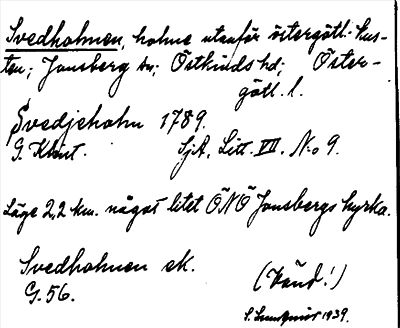 Svedholmen, holme utanför östergötl. kus-
ten; Jonsberg sn; Östkinds hd; Öster-
götl. l.
Svedjeholm 1789.
G. Klint. SjA, Litt. VII. N:o 9.
Läge 2,2 km. något litet ÖNÖ Jonsbergs kyrka.
Svedholmen ek.
G. 56. (Vänd!)
S. 1939.